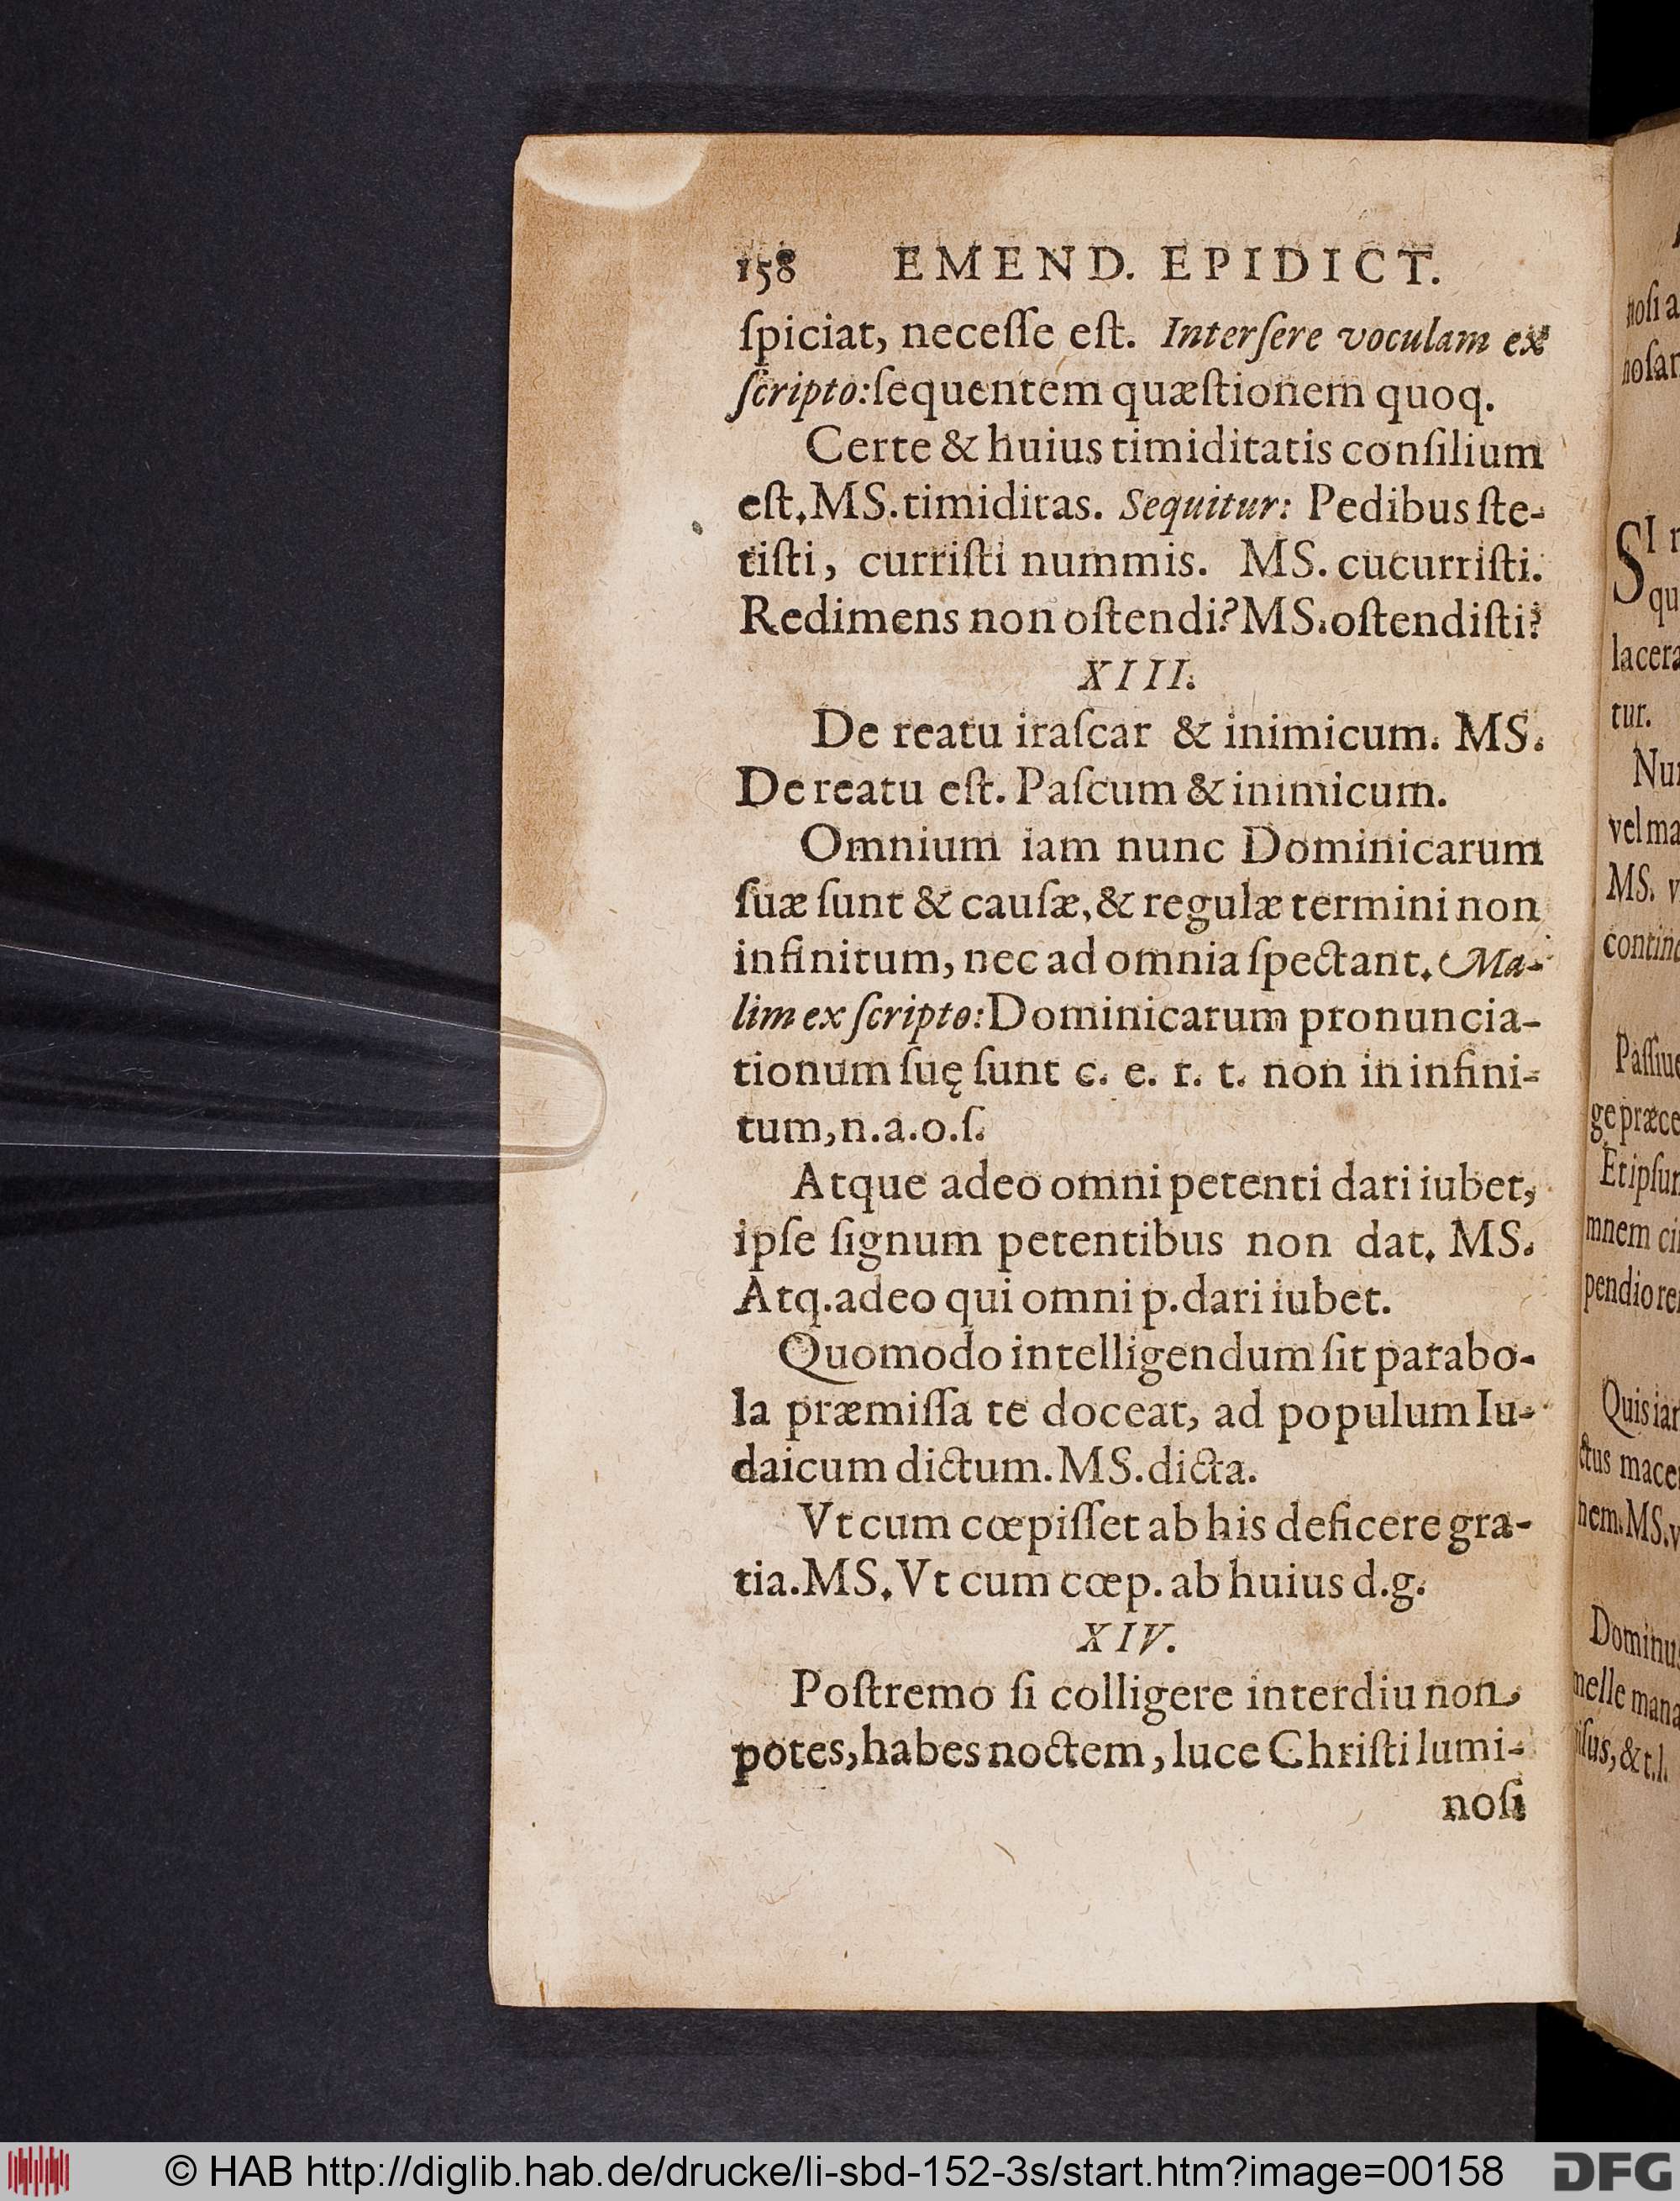 158 EMEND. EPIDICT.
ſpiciat, neceſſe eſt. Interſere voculam ex
ſcripto: ſequentem quæſtionem quoq.
Certe & huius timiditatis conſilium
eſt. MS. timiditas. Sequitur: Pedibus ſte-
tiſti, curriſti nummis. MS. cucurriſti.
Redimens non oſtendi? MS. oſtendiſti?
XIII.
De reatu iraſcar & inimicum. MS.
De reatu eſt. Paſcum & inimicum.
Omnium iam nunc Dominicarum
ſuæ ſunt & cauſæ, & regulæ termini non
infinitum, nec ad omnia ſpectant. Ma-
lim ex ſcripto: Dominicarum pronuncia-
tionum ſuę ſunt c. e. r. t. non in infini-
tum, n. a. o. ſ.
Atque adeo omni petenti dari iubet,
ipſe ſignum petentibus non dat. MS.
Atq. adeo qui omni p. dari iubet.
Quomodo intelligendum ſit parabo-
la præmiſſa te doceat, ad populum Iu-
daicum dictum. MS. dicta.
Vt cum cœpiſſet ab his deficere gra-
tia. MS. Vt cum cœp. ab huius d. g.
XIV.
Poſtremo ſi colligere interdiu non
potes, habes noctem, luce Chriſti lumi-
noſi
SI
qu
lacera
tur.
vel ma
MS. v
Quis iar
ctus mace
nem. MS. v
melle mana
© HAB http://diglib.hab.de/drucke/li-sbd-152-3s/start.htm?image=00158
DFG